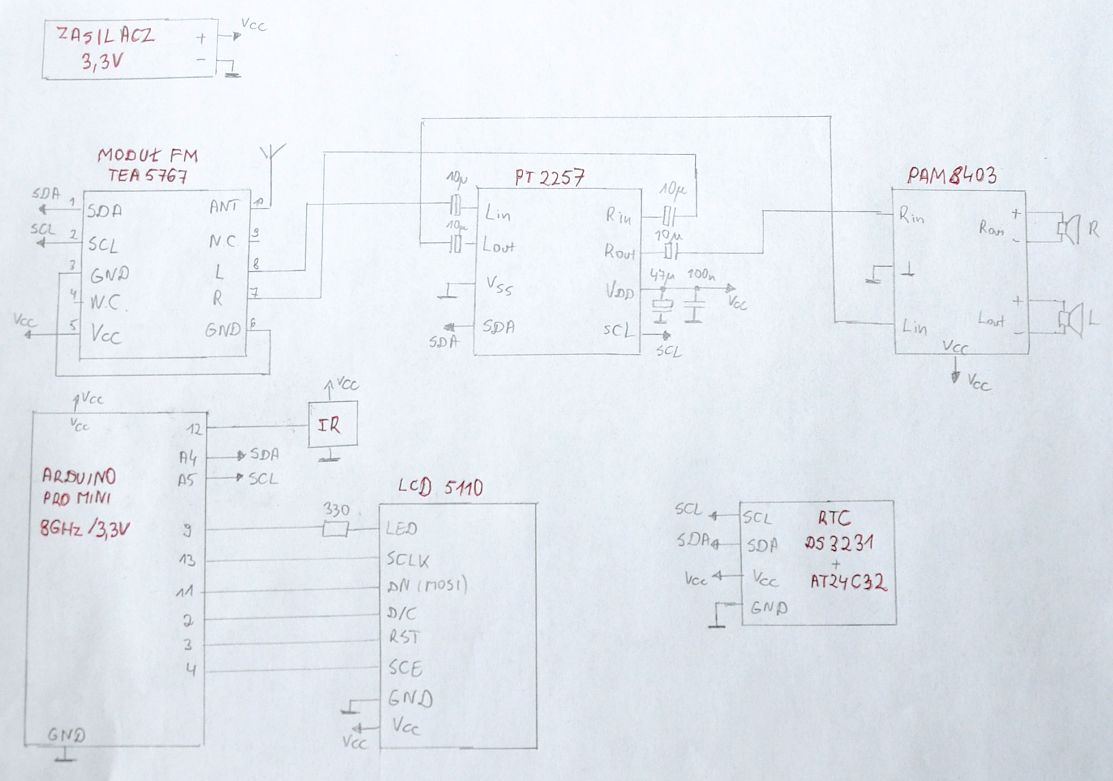 ZASILACZ
3,3V
+
-
Vcc
MODUŁ FM
TEA5767
SDA
SCL
Vcc
1
2
3
4
5
SDA
SCL
GND
N.C.
Vcc
ANT
N.C
L
R
GND
10
9
8
7
6
PT2257
10µ
10µ
Lin
Lout
Vss
SDA
SDA
Rin
Rout
VDD
SCL
10µ
10µ
47µ
100n
Vcc
SCL
PAM8403
Rin
⊥
Lin
Vcc
Vcc
Rout
Lout
+
-
+
-
R
L
Vcc
Vcc
ARDUINO
PRO MINI
8GHz/3,3V
GND
12
A4
A5
9
13
11
2
3
4
Vcc
IR
SDA
SCL
330
LCD 5110
LED
SCLK
DN(MOSI)
D/C
RST
SCE
GND
Vcc
Vcc
SCL
SDA
Vcc
SCL
SDA
Vcc
GND
RTC
DS3231
+
AT24C32